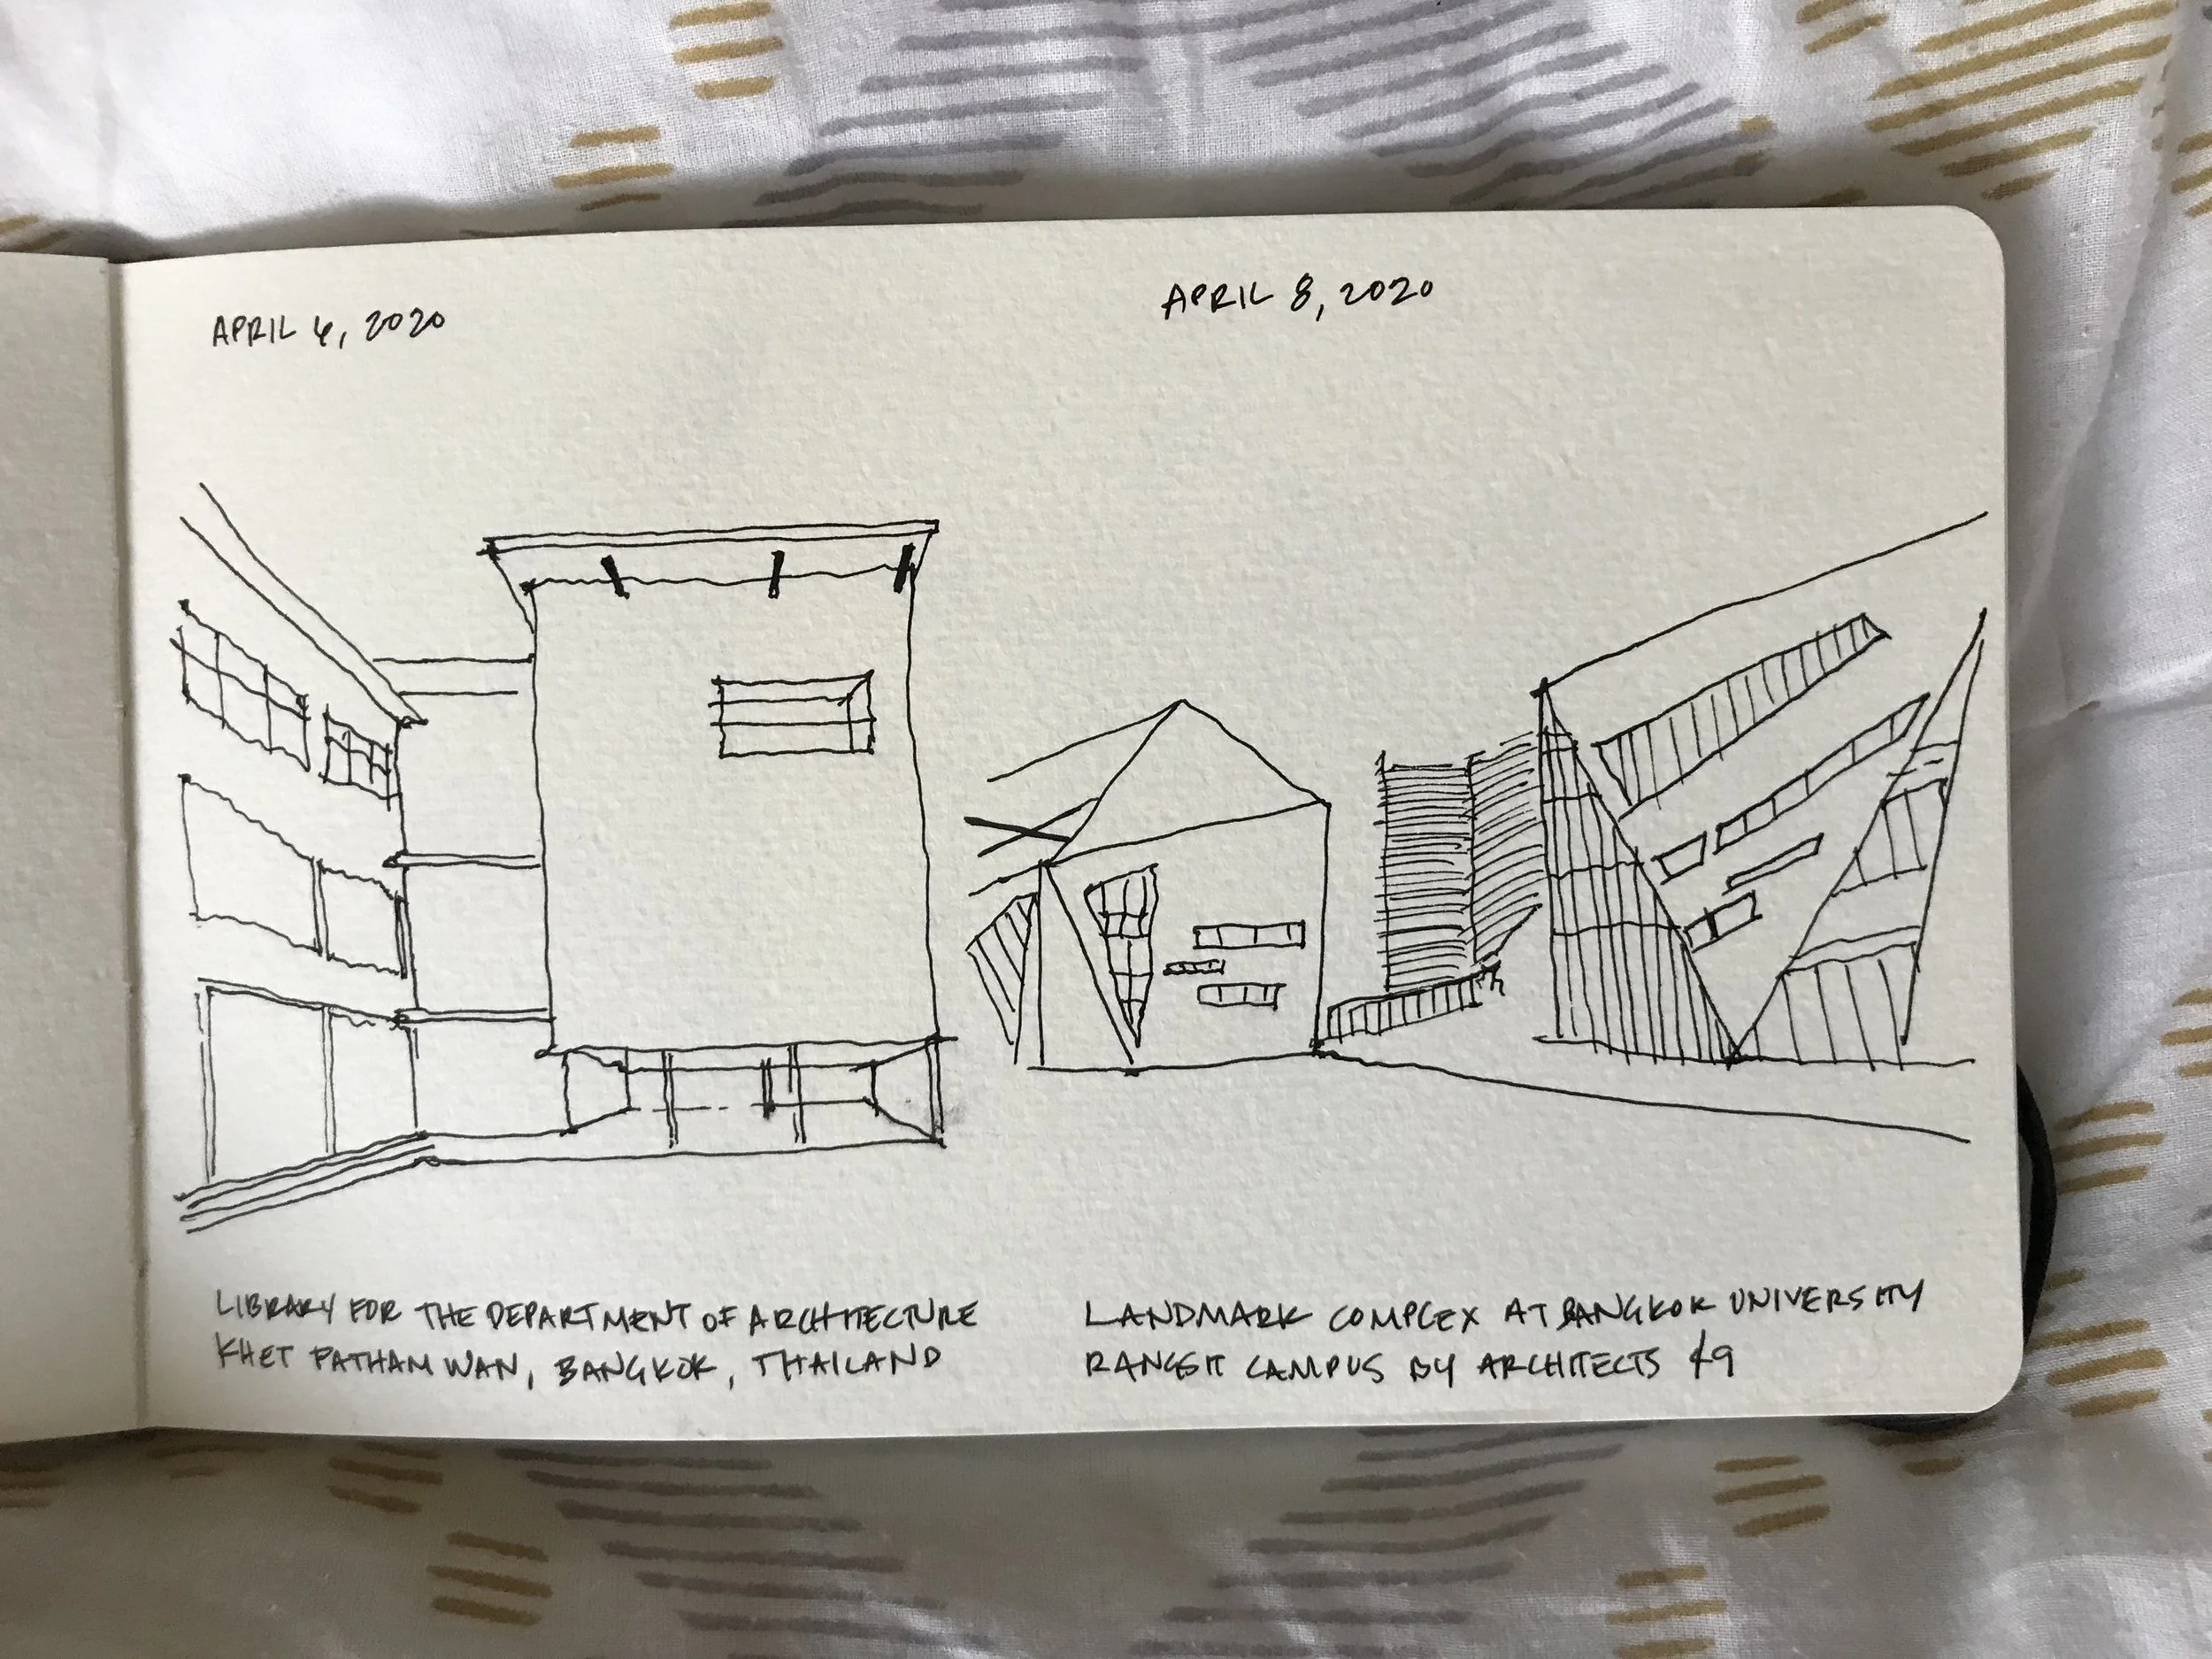 APRIL 6, 2020
LIBRARY FOR THE DEPARTMENT OF ARCHITECTURE
KHET PATHAM WAN, BANGKOK, THAILAND
APRIL 8, 2020
LANDMARK COMPLEX AT BANGKOK UNIVERSITY
RANGSIT CAMPUS BY ARCHITECTS 49